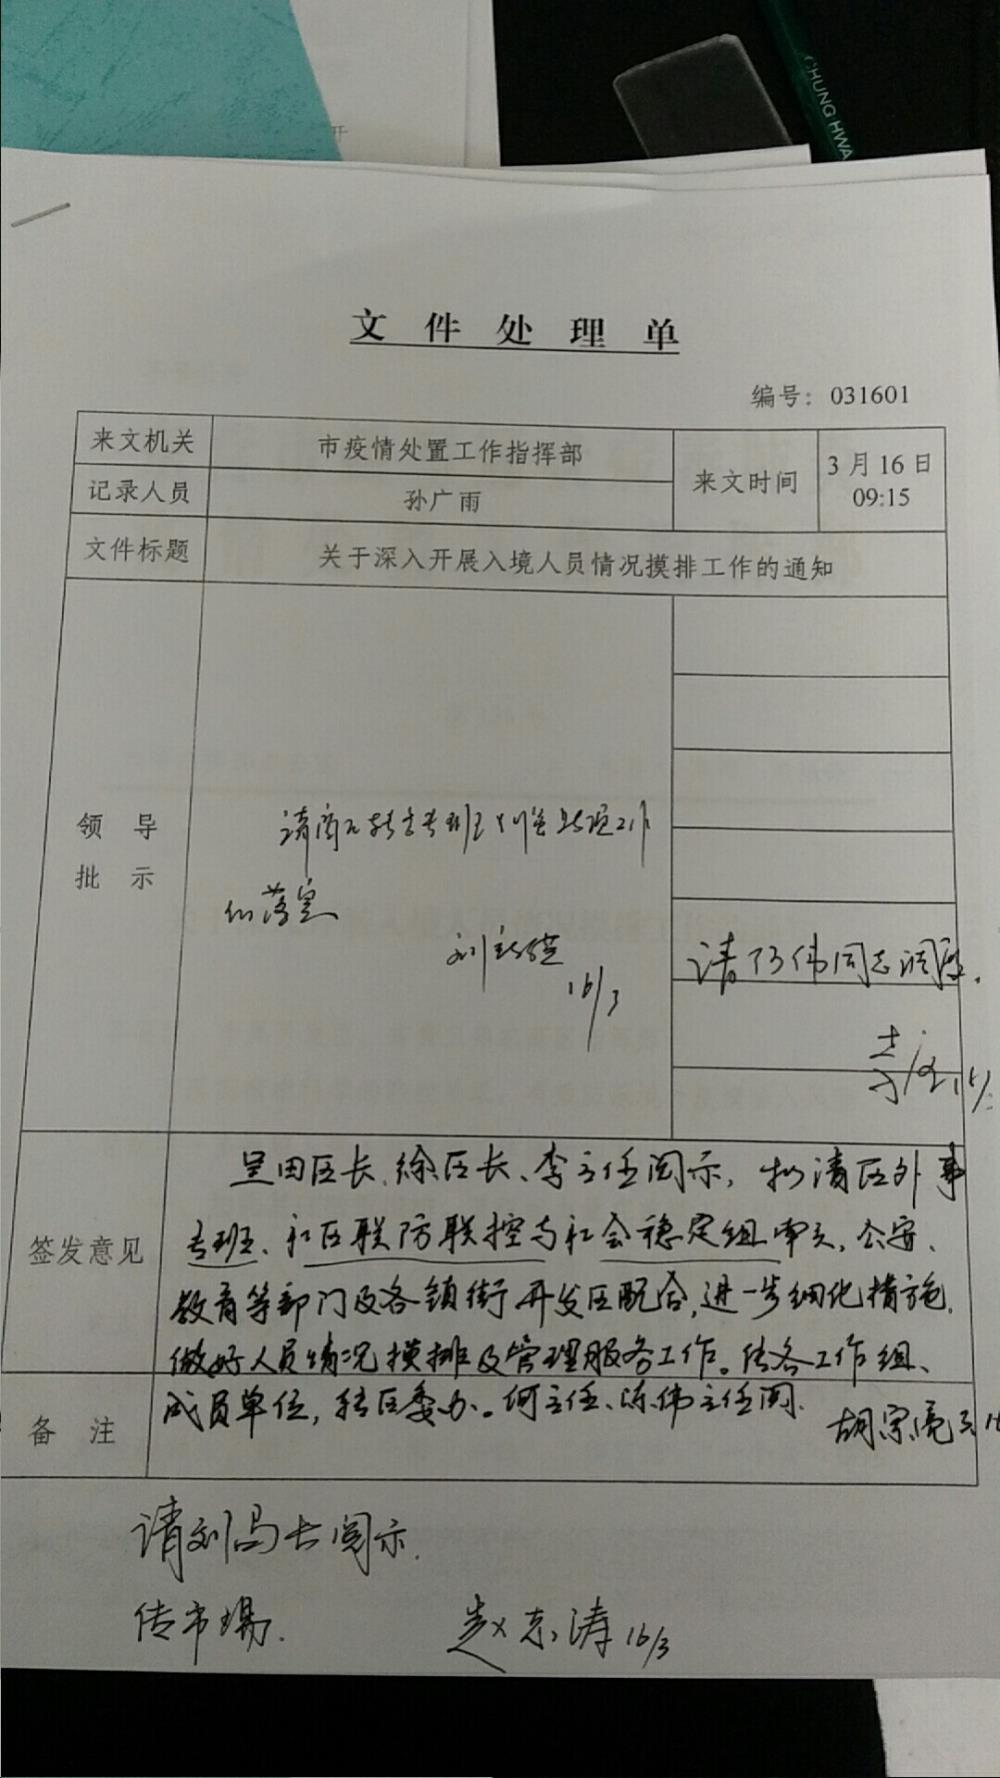 CHUNG HWA
开
文件处理单
编号：031601
来文机关 市疫情处置工作指挥部 来文时间 3月16日 09:15
记录人员 孙广雨
文件标题 关于深入开展入境人员情况摸排工作的通知
领导批示
落实
16/3
请 伟同志阅
签发意见
区长、徐区长、李主任阅示，拟请区外事
专班、社区联防联控与社会稳定组牵头，公安、
教育等部门及各镇街开发区配合，进一步细化措施，
做好人员情况摸排及管理服务工作。传各工作组、
成员单位，转区委办。何主任、陈伟主任阅。
备注
胡宗亮
请刘局长阅示.
传市场.
赵东涛 16/3